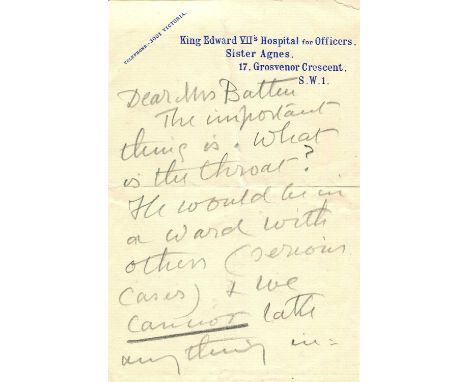 TELEPHONE: 5062 VICTORIA.
King Edward VII's Hospital for Officers.
Sister Agnes.
17, Grosvenor Crescent.
S.W.1.
Dear Mrs Batten
The important
thing is. What
is the throat?
He would be in
a ward with
others (serious
cases) & we
cannot
anything in=